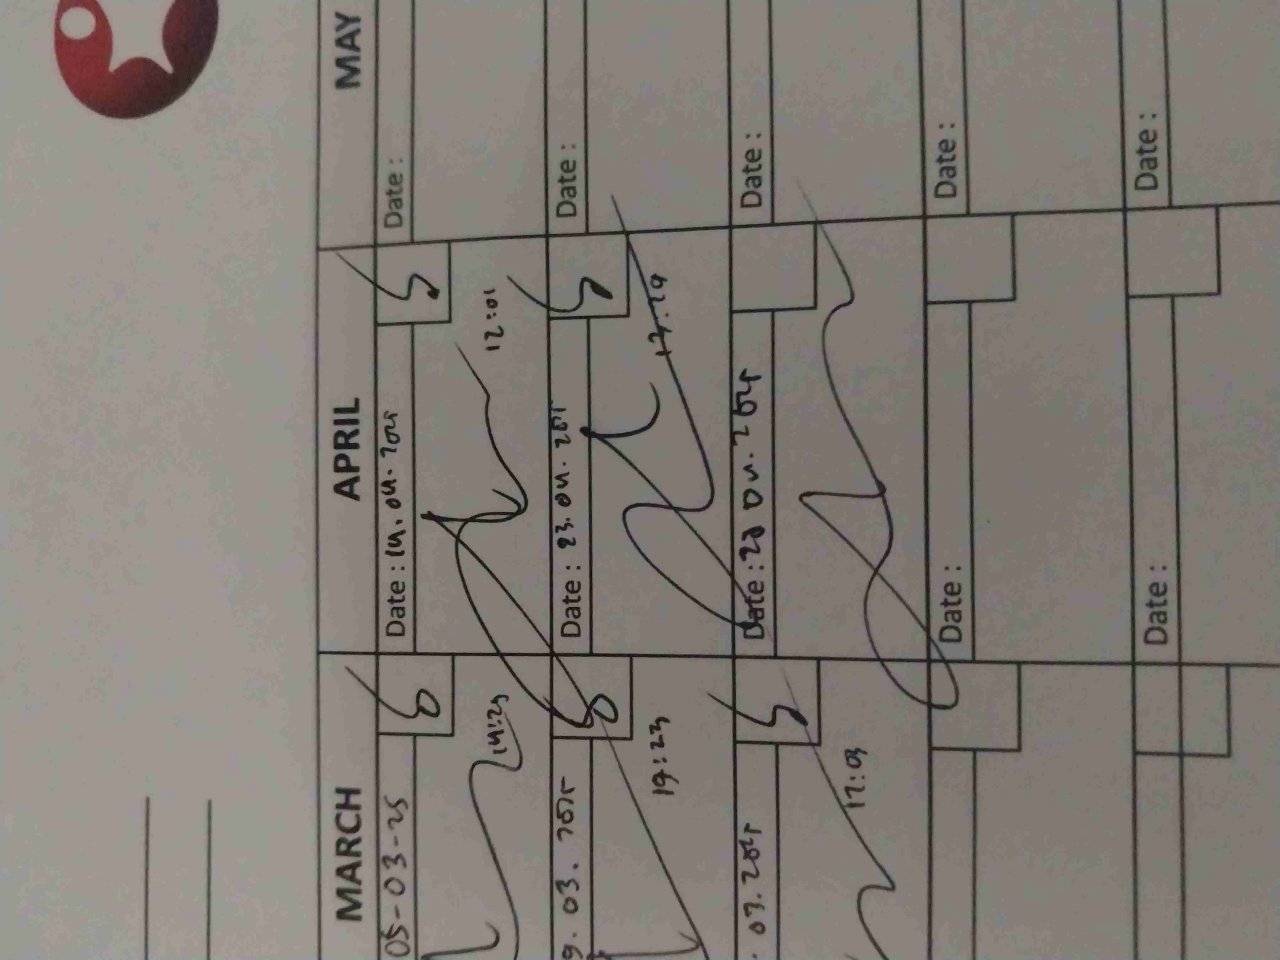 MARCH APRIL MAY
05-03-25 Date : 14.04.2025 Date :
14:23 12:01
9. 03. 2025 Date : 23.04.2025 Date :
19:23 17:29
. 03.2025 Date : 04.2025 Date :
17:03
Date : Date :
Date : Date :